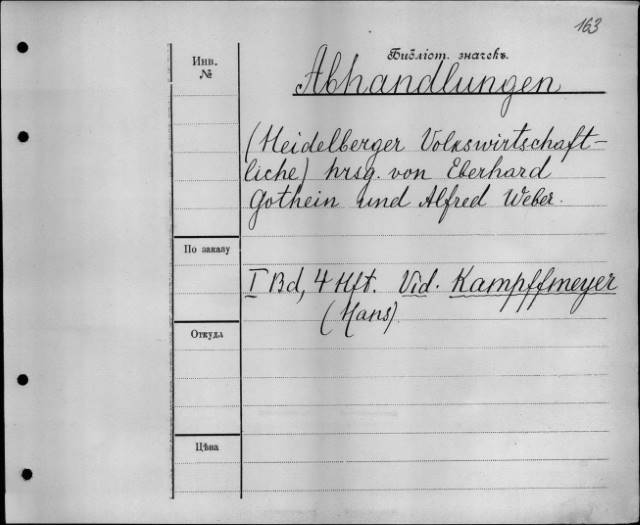 163
Библіот. значекъ.
Инв.
№
Abhandlungen
(Heidelberger Volkswirtschaft-
liche) hrsg. von Eberhard
Gothein und Alfred Weber.
По заказу
I Bd, 4 Hft. Vid. Kampffmeyer
(Hans).
Откуда
Цѣна